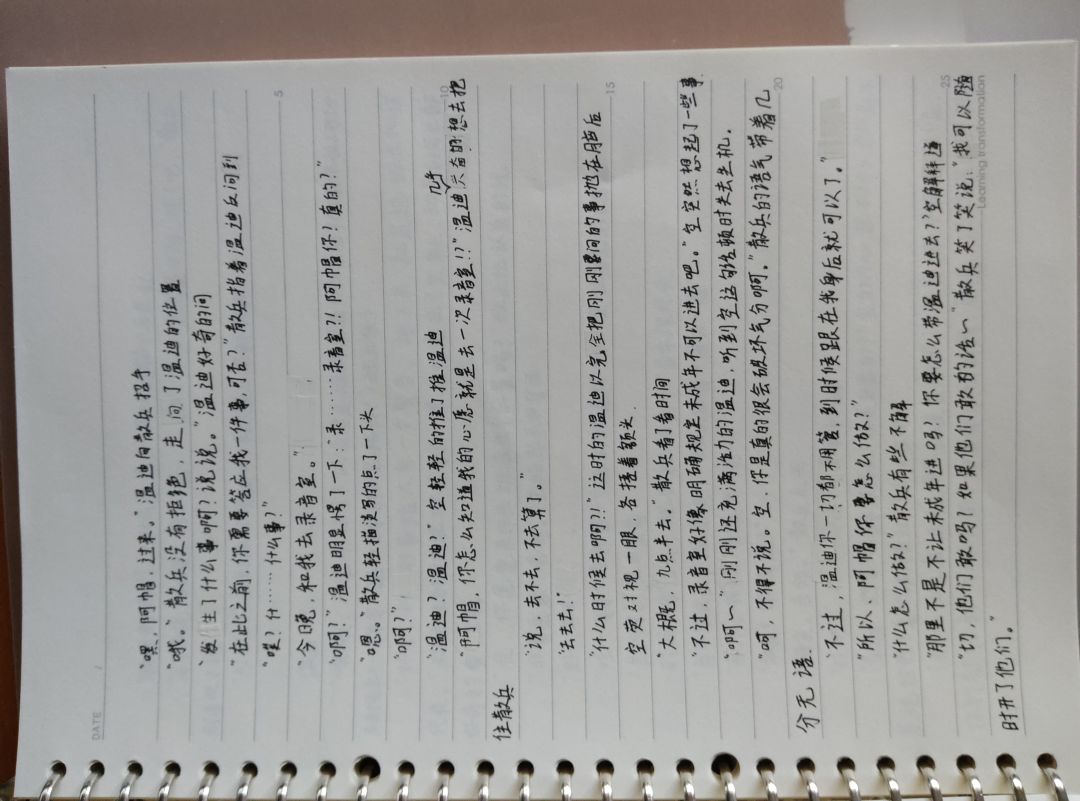 DATE
"嘿，阿帽，过来。"温迪向散兵招手
"哦。"散兵没有拒绝，走向了温迪的位置
"发生了什么事啊？说说。"温迪好奇的问
"在此之前，你需要答应我一件事，可否？"散兵指着温迪反问到
"嘿？什……什么事？"
"今日晚，和我去录音室。"
"啊？"温迪明显愣了一下："录……录音室?!阿帽你！真的？"
"嗯。"散兵轻描淡写的点了一下头
"啊？"
"温迪？温迪？"空轻轻的推了推温迪
"阿帽，你怎么知道我的心愿就是去一次录音室!?"温迪几乎兴奋的想去把
住散兵
"说，去不去，不去算了。"
"去去去！"
"什么时候去啊?!"这时的温迪以完全把刚刚要问的事抛在脑后
空荧对视一眼，各揉着额头
"大概，九点半去。"散兵看了看时间
"不过，录音室好像明确规定未成年不可以进去吧。"空突然想起了一些事
"啊～"刚刚还充满活力的温迪，听到空这句话顿时失去生机。
"呵，不得不说。空，你是真的很会破坏气分啊。"散兵的语气带着几
分无语
"不过，温迪你一切都不用管，到时候跟在我身后就可以了。"
"所以，阿帽你要怎么做？"
"什么怎么做？"散兵有些不解
"那里不是不让未成年进吗？你要怎么带温迪进去？"空解释道
"切，他们敢吗？如果他们敢的话～"散兵笑了笑说："我可以随
时开了他们。"
5
10
15
20
25
Learning transformation